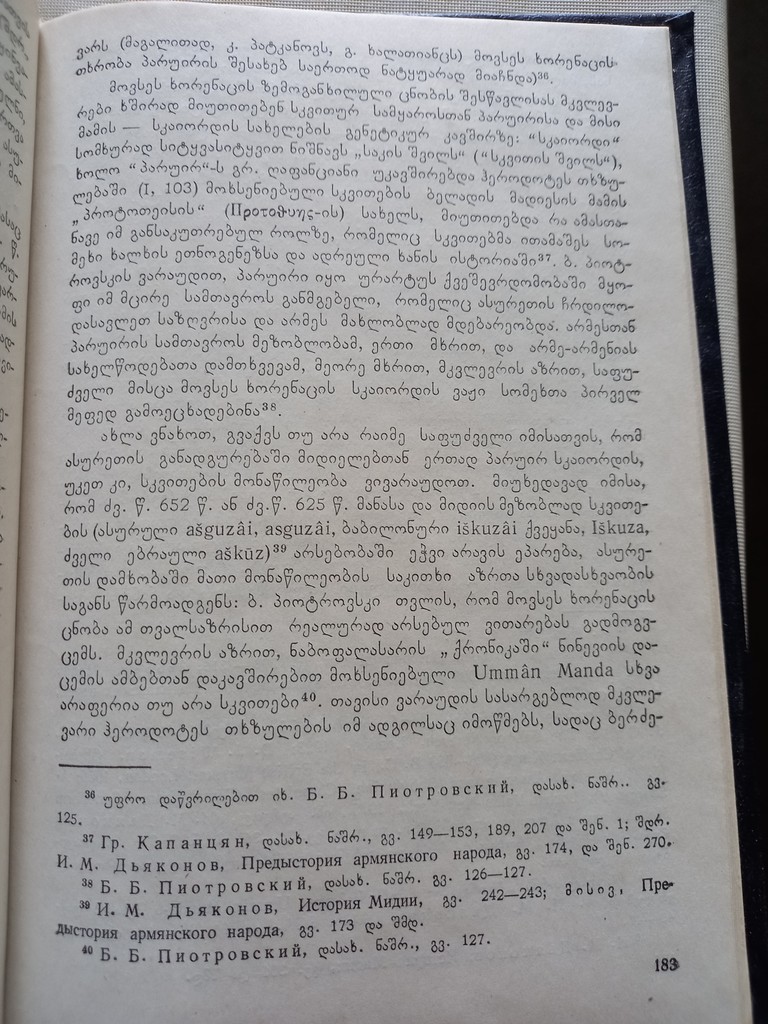 ვარს (მაგალითად, კ. პატკანოვს, გ. ხალათიანცს) მოვსეს ხორენაცის
თხრობა პარუირის შესახებ საერთოდ ნატყუარად მიაჩნდა)³⁶.
მოვსეს ხორენაცის ზემოგანხილული ცნობის შესწავლისას მკვლევ-
რები ხშირად მიუთითებენ სკვითურ სამყაროსთან პარუირისა და მისი
მამის — სკაიორდის სახელების გენეტიკურ კავშირზე: “სკაიორდი“
სომხურად სიტყვასიტყვით ნიშნავს „საკის შვილს“ (“სკვითის შვილს“),
ხოლო “პარუირ“-ს გრ. ღაფანციანი უკავშირებდა ჰეროდოტეს თხზუ-
ლებაში (I, 103) მოხსენიებული სკვითების ბელადის მადიესის მამის
„პროტოთეისის“ (Προτοθυης-ის) სახელს, მიუთითებდა რა ამასთა-
ნავე იმ განსაკუთრებულ როლზე, რომელიც სკვითებმა ითამაშეს სო-
მეხი ხალხის ეთნოგენეზსა და ადრეული ხანის ისტორიაში³⁷. ბ. პიოტ-
როვსკის ვარაუდით, პარუირი იყო ურარტუს ქვეშევრდომობაში მყო-
ფი იმ მცირე სამთავროს განმგებელი, რომელიც ასურეთის ჩრდილო-
დასავლეთ საზღვრისა და არმეს მახლობლად მდებარეობდა. არმესთან
პარუირის სამთავროს მეზობლობამ, ერთი მხრით, და არმე-არმენიას
სახელწოდებათა დამთხვევამ, მეორე მხრით, მკვლევრის აზრით, საფუ-
ძველი მისცა მოვსეს ხორენაცის სკაიორდის ვაჟი სომეხთა პირველ
მეფედ გამოეცხადებინა³⁸.
ახლა ვნახოთ, გვაქვს თუ არა რაიმე საფუძველი იმისათვის, რომ
ასურეთის განადგურებაში მიდიელებთან ერთად პარუირ სკაიორდის,
უკეთ კი, სკვითების მონაწილეობა ვივარაუდოთ. მიუხედავად იმისა,
რომ ძვ. წ. 652 წ. ან ძვ. წ. 625 წ. მანასა და მიდიის მეზობლად სკვითე-
ბის (ასურული ašguzâi, asguzâi, ბაბილონური iškuzâi ქვეყანა, Iškuza,
ძველი ებრაული aškūz)³⁹ არსებობაში ეჭვი არავის ეპარება, ასურე-
თის დამხობაში მათი მონაწილეობის საკითხი აზრთა სხვადასხვაობის
საგანს წარმოადგენს: ბ. პიოტროვსკი თვლის, რომ მოვსეს ხორენაცის
ცნობა ამ თვალსაზრისით რეალურად არსებულ ვითარებას გადმოგვ-
ცემს. მკვლევრის აზრით, ნაბოფალასარის „ქრონიკაში“ ნინევიის და-
ცემის ამბებთან დაკავშირებით მოხსენიებული Ummân Manda სხვა
არაფერია თუ არა სკვითები⁴⁰. თავისი ვარაუდის სასარგებლოდ მკვლე-
ვარი ჰეროდოტეს თხზულების იმ ადგილსაც იმოწმებს, სადაც ბერძე-
³⁶ უფრო დაწვრილებით იხ. Б. Б. Пиотровский, დასახ. ნაშრ.. გვ.
125.
³⁷ Гр. Капанцян, დასახ. ნაშრ., გვ. 149—153, 189, 207 და შენ. 1; შდრ.
И. М. Дьяконов, Предыстория армянского народа, გვ. 174, და შენ. 270.
³⁸ Б. Б. Пиотровский, დასახ. ნაშრ. გვ. 126—127.
³⁹ И. М. Дьяконов, История Мидии, გვ. 242—243; მისივე, Пре-
дыстория армянского народа, გვ. 173 და შმდ.
⁴⁰ Б. Б. Пиотровский, დასახ. ნაშრ., გვ. 127.
183